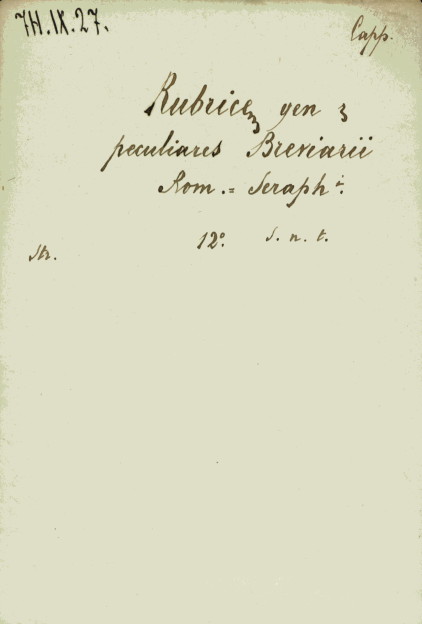 7H.IX.27.
Capp.
Rubrice gen
peculiares Breviarii
Rom.= Seraphi.
12º. s. n. t.
str.